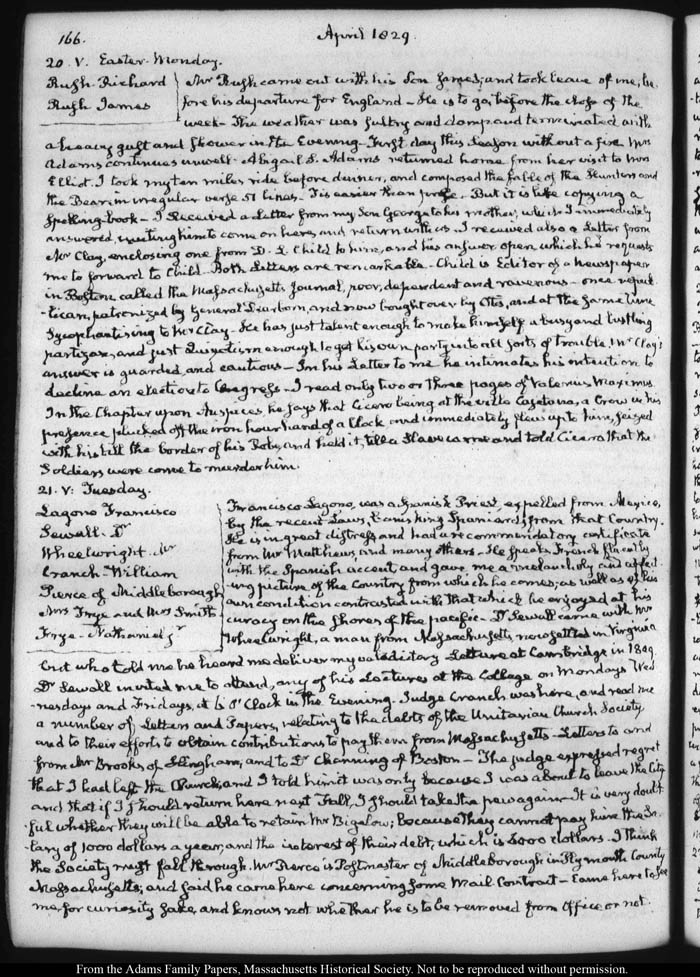 166. April 1829.
20. V. Easter Monday.
Rush Richard
Rush James
Mr Rush came out with his Son James, and took leave of me, be-
fore his departure for England – He is to go, before the close of the
week – The weather was sultry and damp and terminated with
a heavy gust and shower in the Evening – First day this Season without a fire Mrs
Adams continues unwell – Abigail S. Adams returned home from her visit to Mrs
Elliot. I took my ten miles ride before dinner, and composed the fable of the Hunters and
the Bear in irregular verse 51 lines – Tis easier than prose. But it is like copying a
Spelling-book – I received a Letter from my Son George to his mother, which I immediately
answered, inviting him to come on here, and return with us. I received also a Letter from
Mr Clay, enclosing one from D. L. Child to him, and his answer open which he requests
me to forward to Child. Both Letters are remarkable – Child is Editor of a Newspaper
in Boston called the Massachusetts Journal, poor, dependent and ravenous – once repub-
lican, patronized by General Dearborn, and now bought over by Otis, and at the same time
Sycophantising to Mr Clay – He has just talent enough to make himself a busy and bustling
partizan, and just Quixotism enough to get his own party into all sorts of trouble. Mr Clay's
answer is guarded and cautious – In his Letter to me he intimates his intention to
decline an election to Congress – I read only two or three pages of Valerius Maximus.
In the Chapter upon Auspices, he says that Cicero being at the villa Cajetana, a Crow in his
presence plucked off the iron hour hand of a Clock and immediately flew up to him, seized
with his bill the border of his Robe, and held it, till a Slave came and told Cicero that the
Soldiers were come to murder him.
21. V: Tuesday.
Lagono Francisco
Sewall. Dr
Wheelwright. Mr
Cranch. William
Pierce of Middleborough
Mrs Frye and Mrs Smith
Frye. Nathaniel jr
Francisco Lagono, was a Spanish Priest, expelled from Mexico,
by the recent Laws, banishing Spaniards from that Country.
He is in great distress and had a recommendatory certificate
from Mr Matthews, and many others – He speaks French fluently
with the Spanish accent, and gave me a melancholy and affect-
ing picture of the Country from which he comes; as well as of his
own condition contrasted with that which he enjoyed at his
curacy on the shores of the pacific – Dr Sewall came with Mr
Wheelwright, a man from Massachusetts, now settled in Virginia
but who told me he heard me deliver my valedictory Lecture at Cambridge in 1809.
Dr Sewall invited me to attend, any of his Lectures at the College on Mondays Wed-
nesdays and Fridays, at 6 O'Clock in the Evening. Judge Cranch was here, and read me
a number of Letters and Papers, relating to the debts of the Unitarian Church Society
and to their efforts to obtain contributions to pay them from Massachusetts – Letters to and
from Mr Brooks, of Hingham, and to Dr Channing of Boston – The judge expressed regret
that I had left the Church, and I told him it was only because I was about to leave the City
and that if I should return here next Fall, I should take the pew again – It is very doubt-
ful whether they will be able to retain Mr Bigelow; because they cannot pay him the Sa-
lary of 1000 dollars a year, and the interest of their debt, which is 8000 dollars – I think
the Society must fall through. Mr Pierce is Postmaster of Middleborough in Plymouth County
Massachusetts, and said he came here concerning some Mail Contract – Came here to see
me, for curiosity sake, and knows not whether he is to be removed from Office or not.
From the Adams Family Papers, Massachusetts Historical Society. Not to be reproduced without permission.